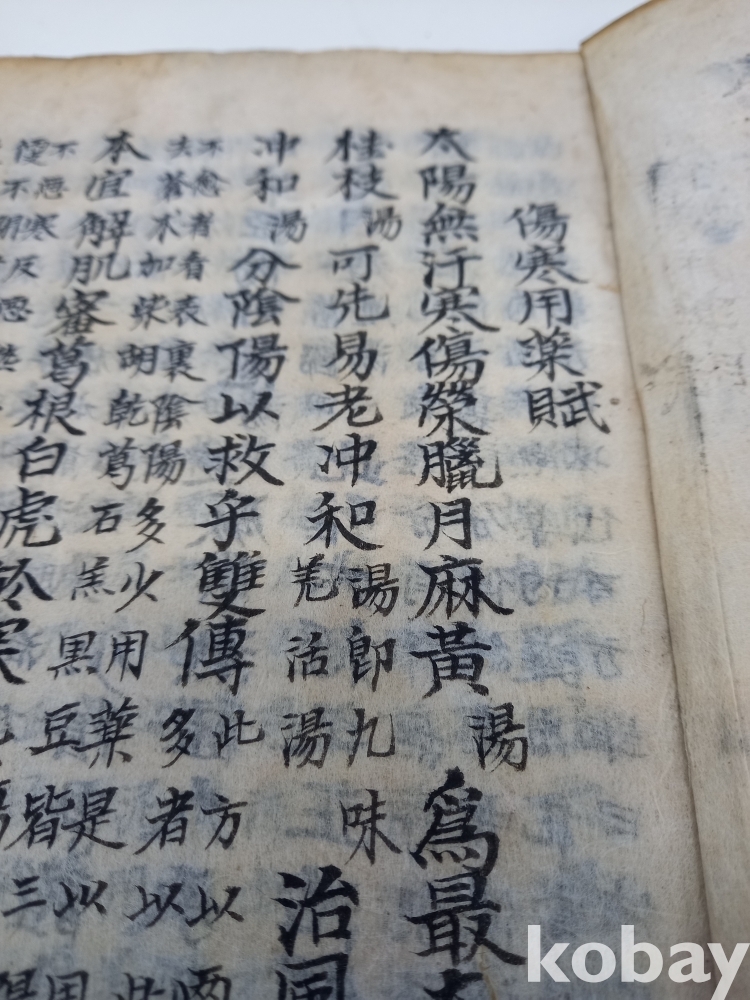 傷寒用藥賦
太陽無汗寒傷榮臘月麻黃湯爲最
桂枝湯可先易老冲和
湯即九味
羗活湯
治風
冲和湯分陰陽以救乎雙傳
此方以兩
多者以此
不愈者看表裏陰陽多少用藥是以用
去蒼朮加柴胡乾葛石羔黑豆皆三得
本宜解肌審葛根白虎於
不惡寒反惡
kobay